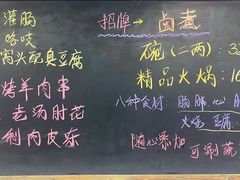 灌肠
咯吱
窝头配臭豆腐
烤羊肉串
老汤肘花
制肉皮冻
招牌 — 卤煮
碗(二两) 32
精品火锅:16
八种食材: 肠 肺 心
火烧 豆腐
随心添加
可涮蔬